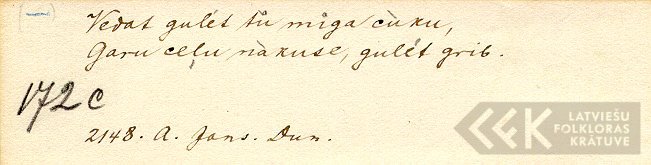 Vedat gulét tů mîga cùku,
Garu ceļu nàkuse, gulét grib.
172 C
2148. A. Jans. Dun.
LATVIEŠU
FOLKLORAS
KRĀTUVE